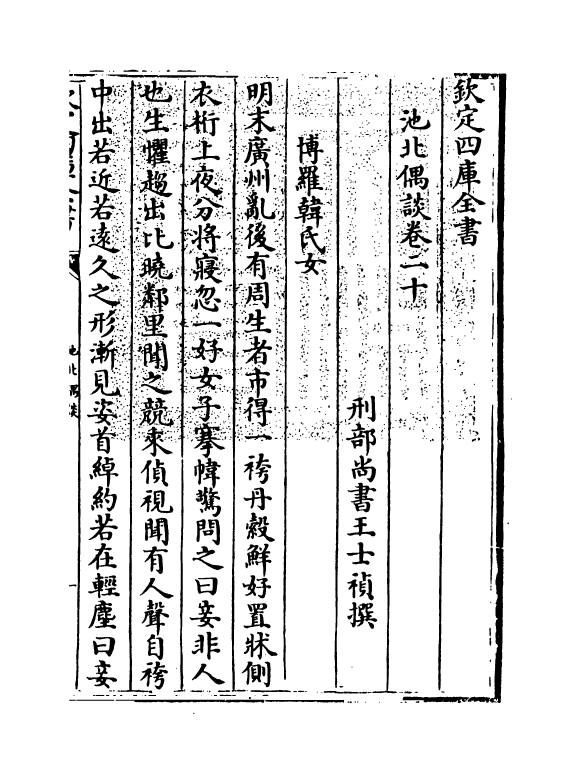 欽定四庫全書
池北偶談卷二十
刑部尚書王士禎撰
博羅韓氏女
明末廣州亂後有周生者市得一袴丹縠鮮好置牀側
衣桁上夜分將寢忽一好女子搴幃驚問之曰妾非人
也生懼趨出比曉鄰里聞之競來偵視聞有人聲自袴
中出若近若遠久之形漸見姿首綽約若在輕塵曰妾
池北偶談
一